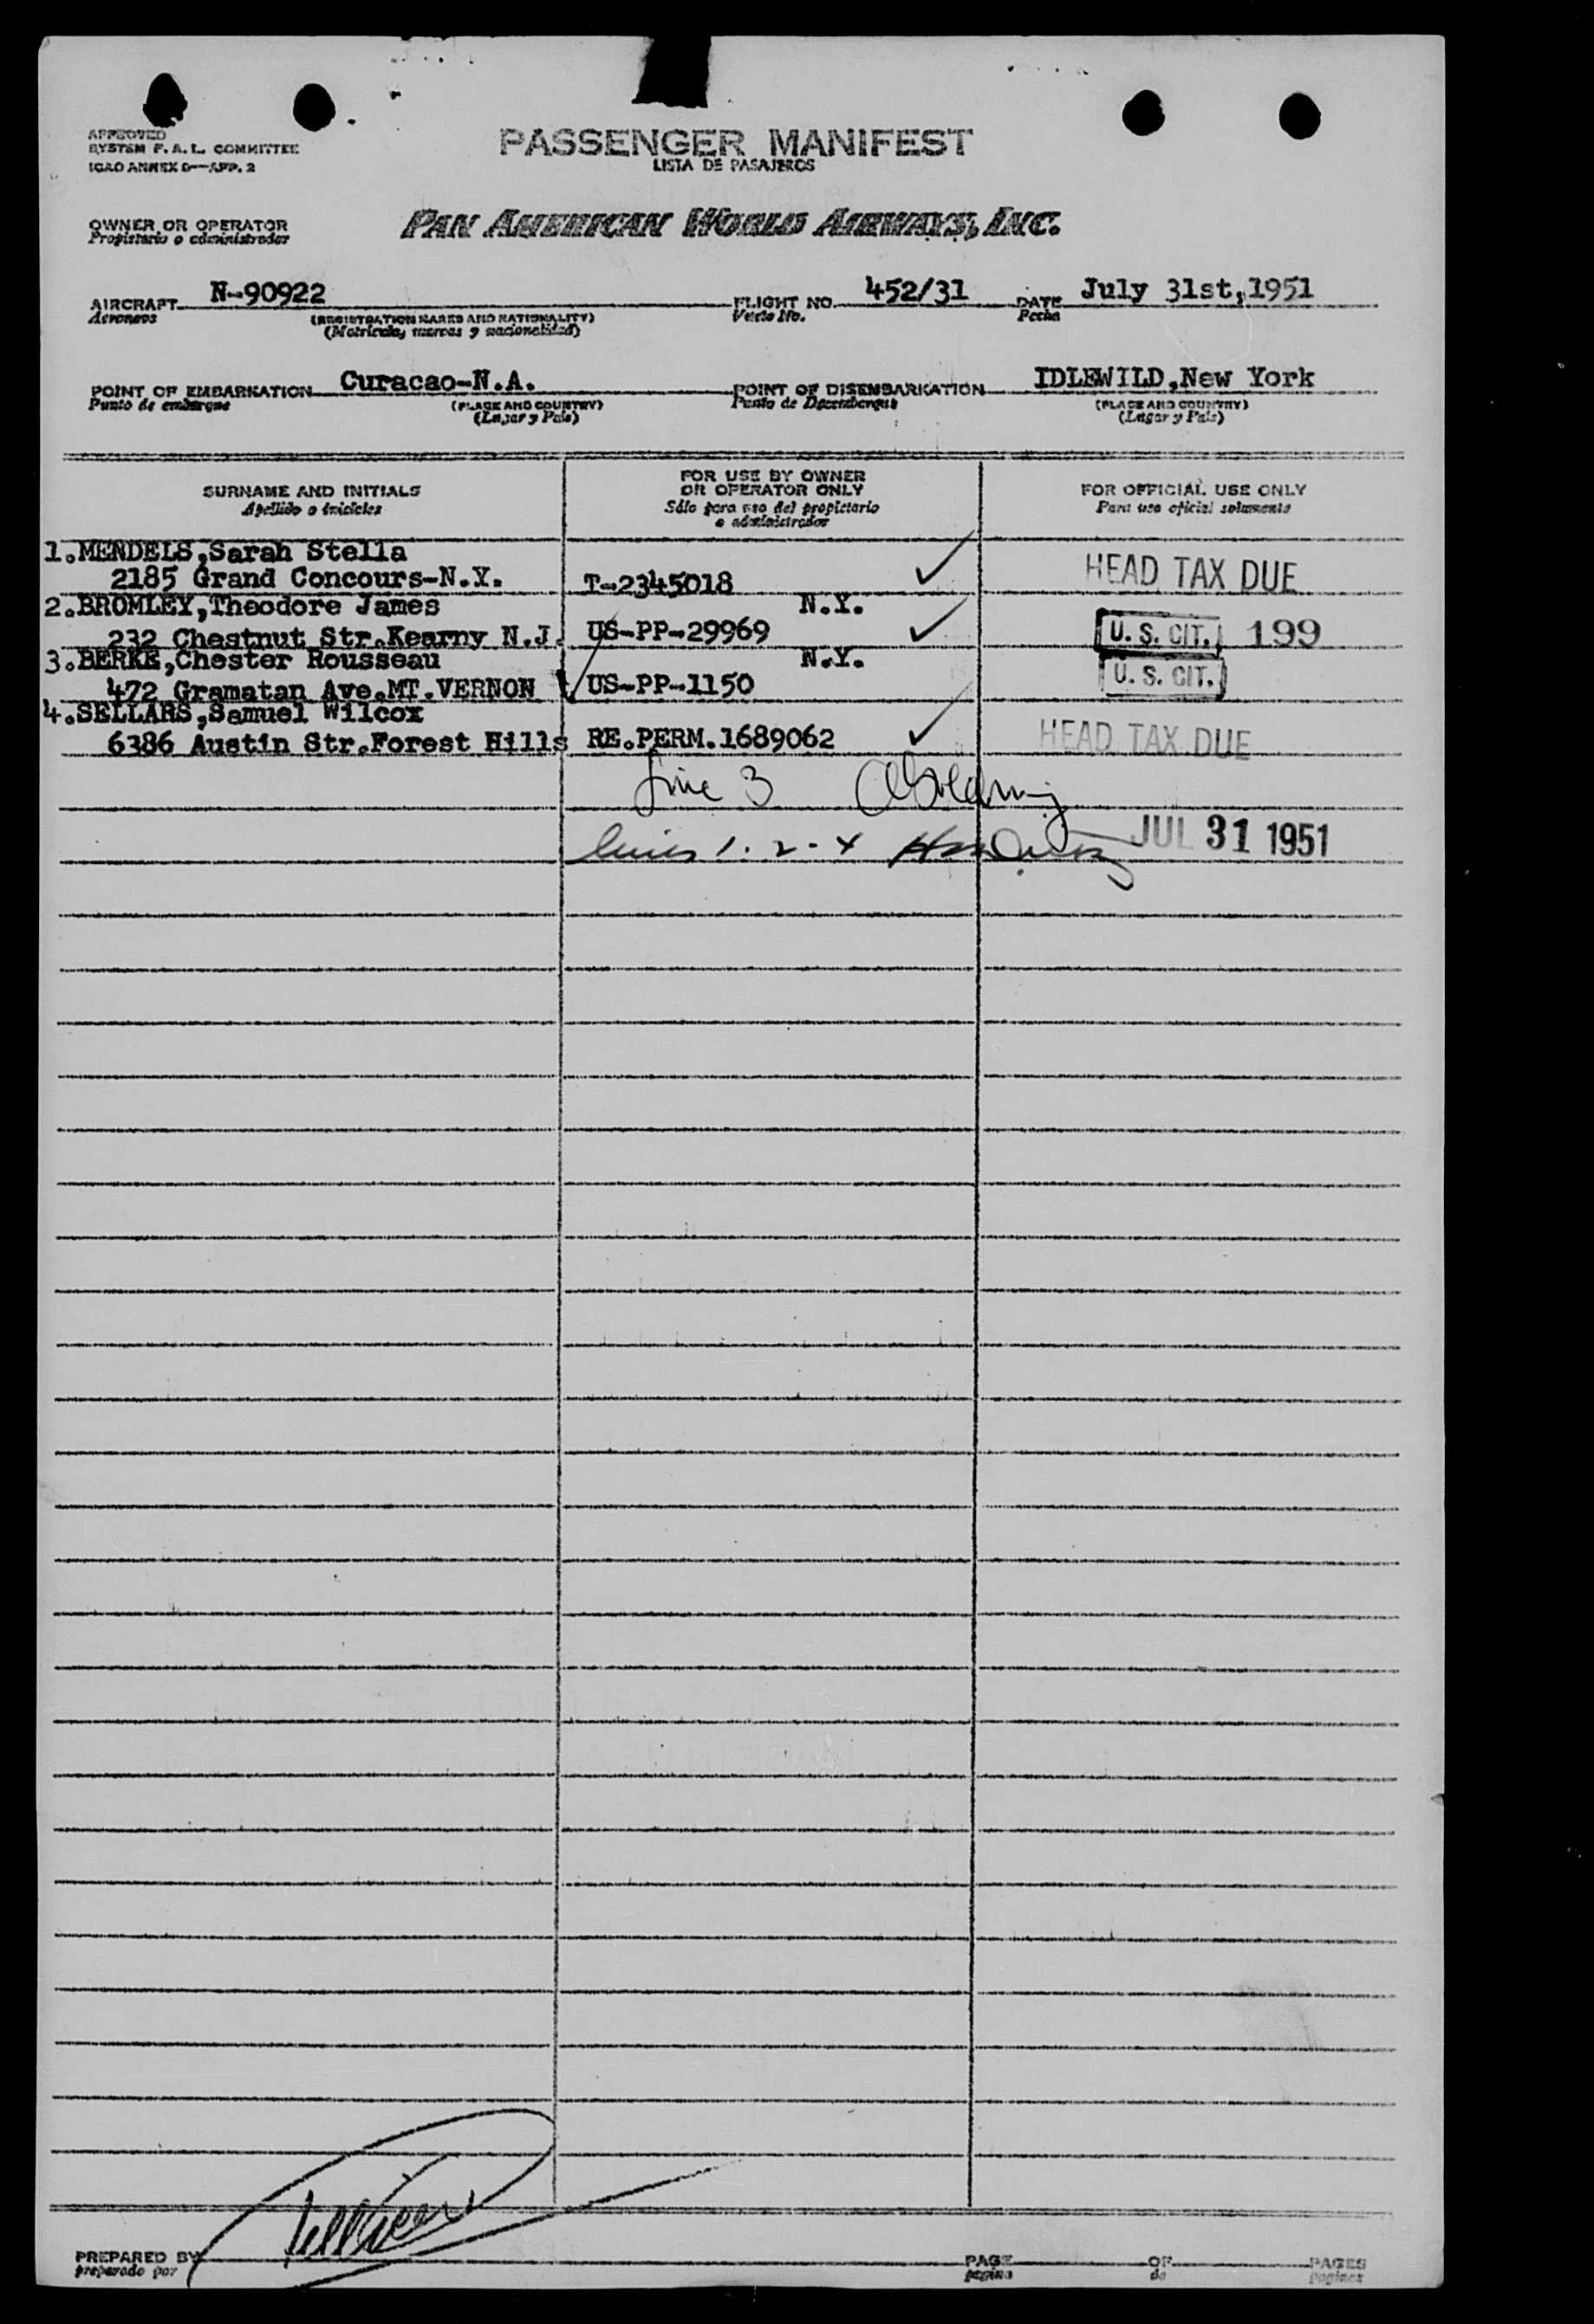 APPROVED
SYSTEM F. A. L. COMMITTEE
ICAO ANNEX 9—APP. 2
PASSENGER MANIFEST
LISTA DE PASAJEROS
OWNER OR OPERATOR
Propietario o administrador
PAN AMERICAN WORLD AIRWAYS, INC.
AIRCRAFT N-90922 FLIGHT NO. 452/31 DATE July 31st,1951
Aeronave (REGISTRATION MARKS AND NATIONALITY) Vuelo No. Fecha
(Matricula, marcas y nacionalidad)
POINT OF EMBARKATION Curacao-N.A. POINT OF DISEMBARKATION IDLEWILD,New York
Punto de embarque (PLACE AND COUNTRY) Punto de Desembarque (PLACE AND COUNTRY)
(Lugar y Pais) (Lugar y Pais)
SURNAME AND INITIALS
Apellido o iniciales
FOR USE BY OWNER
OR OPERATOR ONLY
Sólo para uso del propietario
o administrador
FOR OFFICIAL USE ONLY
Para uso oficial solamente
1.MENDELS,Sarah Stella
2185 Grand Concours-N.Y. T-2345018 HEAD TAX DUE
2.BROMLEY,Theodore James N.Y.
232 Chestnut Str.Kearny N.J. US-PP-29969 U. S. CIT. 199
3.BERKE,Chester Rousseau N.Y.
472 Gramatan Ave.MT.VERNON US-PP-1150 U. S. CIT.
4.SELLARS,Samuel Wilcox
6386 Austin Str.Forest Hills RE.PERM.1689062 HEAD TAX DUE
Line 3
lines 1. 2. 4 JUL 31 1951
PREPARED BY PAGE OF PAGES
preparado por pagina de paginas